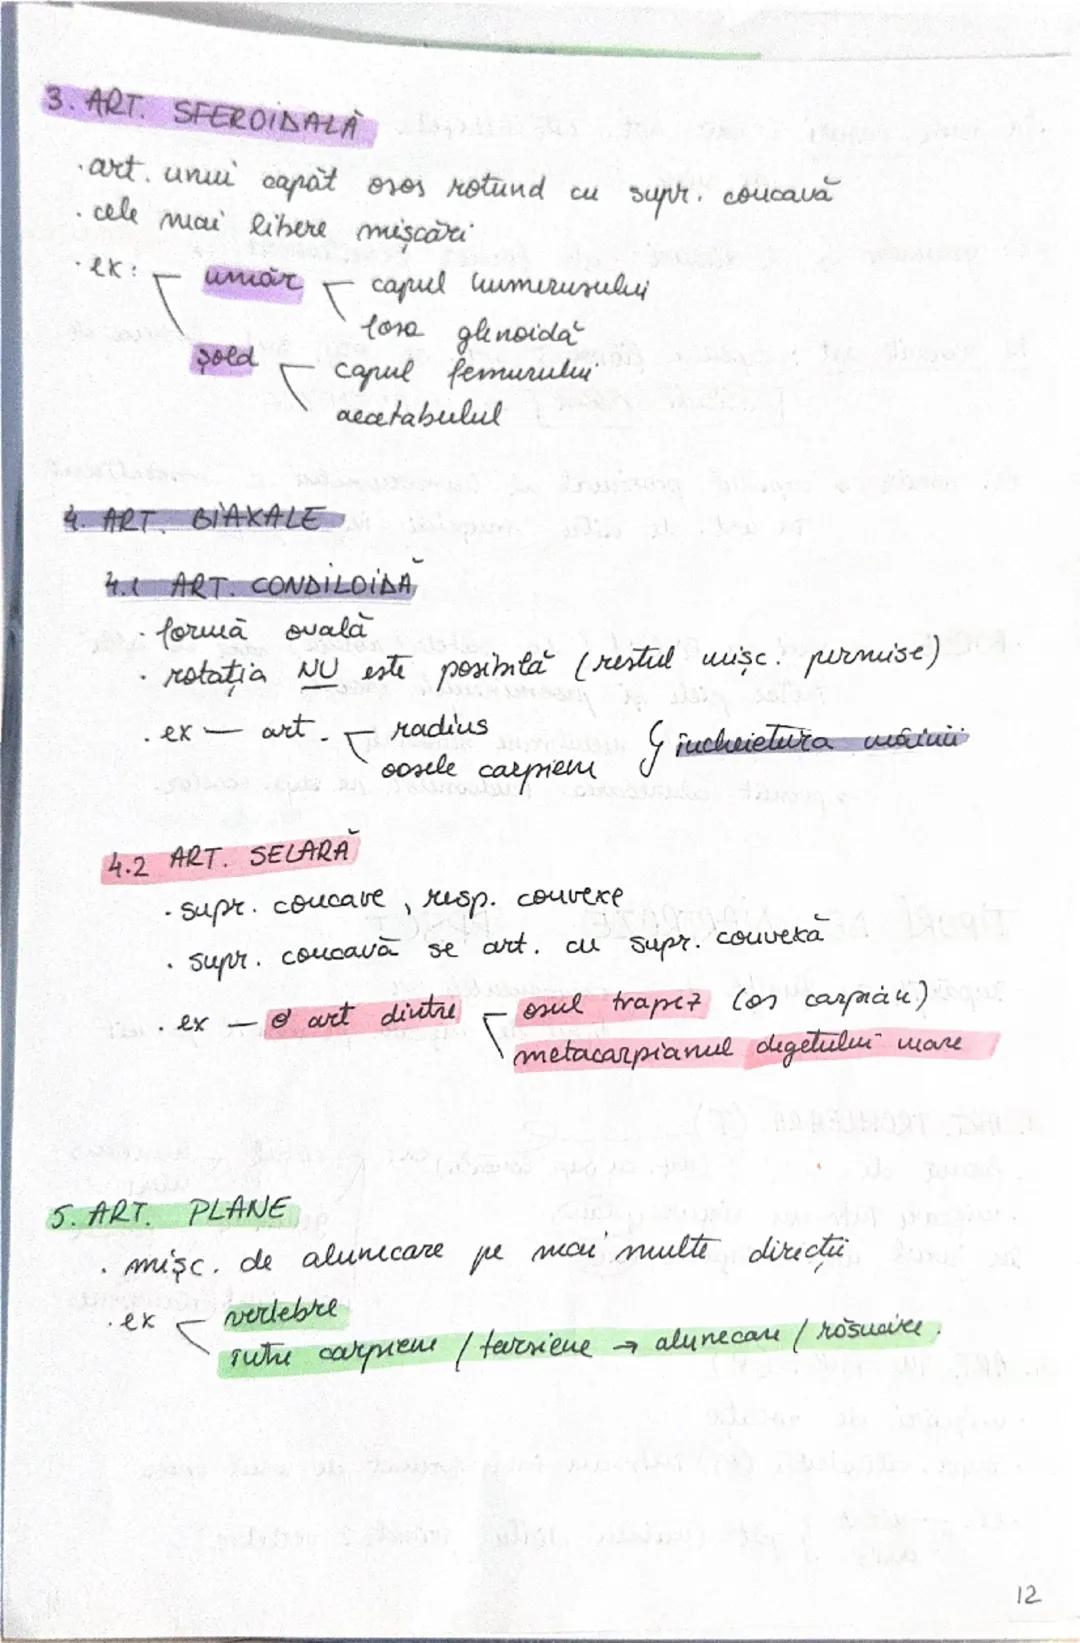 3. ART. SFEROIDALĂ
· art. unui capăt osos rotund cu supr. concavă
· cele mai libere mișcări
· ex: umăr capul humerusului
fosa glenoidă
șold capul femurului
acetabulul
4. ART. BIAXALE
4.1 ART. CONDILOIDĂ
· formă ovală
· rotația NU este posibilă (restul mișc. permise)
· ex — art. radius
oasele carpiene } încheietura mâinii
4.2 ART. SELARĂ
· supr. concave, resp. convexe
· supr. concavă se art. cu supr. convexă
· ex — art dintre osul trapez (os carpian)
metacarpianul degetului mare
5. ART. PLANE
· mișc. de alunecare pe mai multe direcții
· ex vertebre
între carpiene / tarsiene → alunecare / răsucire.
12